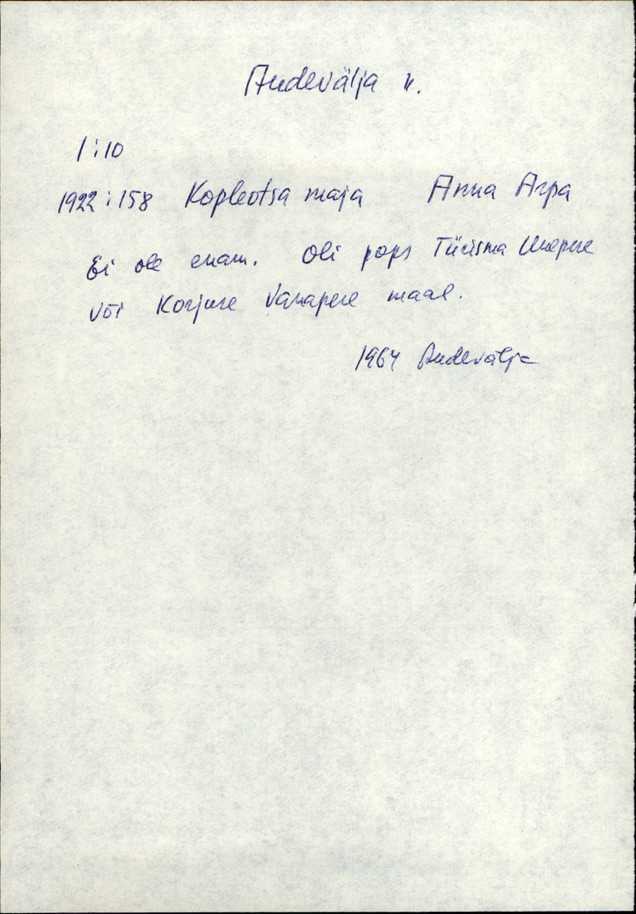 Audevälja k.
1:10
1922:158 Kopleotsa maja Anna Arpa
Ei ole enam. Oli pops Tiirisma Uuepere
või Korjuse Vanapere maal.
1964 Audevälja